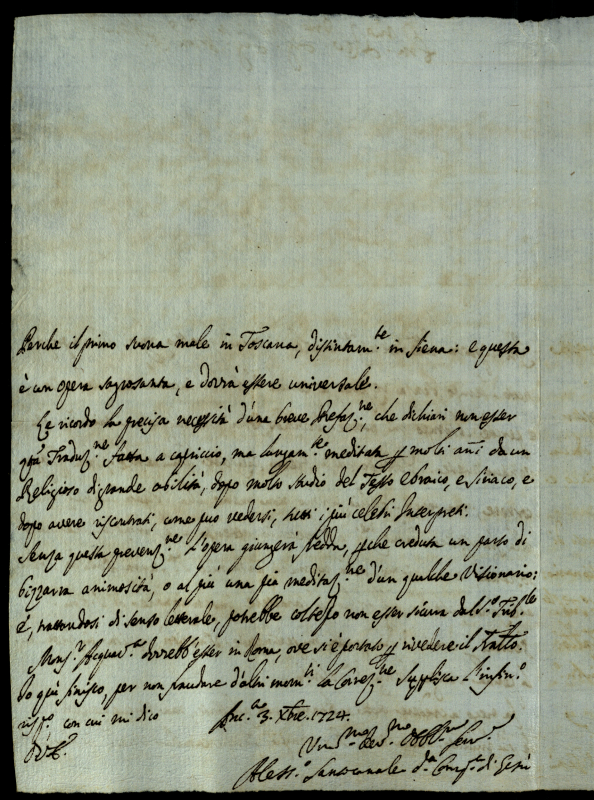 Perche il primo suona male in Toscana, distintam.te in Siena: e questa
è un opera sagrosanta, e dovrà essere universale.
Le ricordo la precisa necessità d'una breve Prefaz.ne, che dichiari non esser
q.ta Traduz.ne fatta a capriccio, ma lungam.te meditata p molti añi da un
Religioso di grande abilità, dopo molto studio del Testo ebraico, e siriaco, e
dopo avere riscontrati, come puo vedersi, tutti i più celebri Interpreti.
Senza questa prevenz.ne L'opera giungerà fredda, pche creduta un parto di
bizzarra animosità, o al più una pia meditaz.ne d'un qualche Visionario:
e, trattandosi di senso letterale, potrebbe costesto non esser sicura dal S.o Trib.le
Mons.r Acquav.va dovrebb'esser in Roma, ove si è portato p rivedere il Tratto.
Io quì finisco, per non fraudare d'altri mom.ti la Correz.ne Supplisca l'infin.o
risp.o con cui mi dico 3. Xbre. 1724.
Um.mo Dev.mo Obbl.mo Serv.e
Aless.o Santocanale d.a Comp.a di Gesù